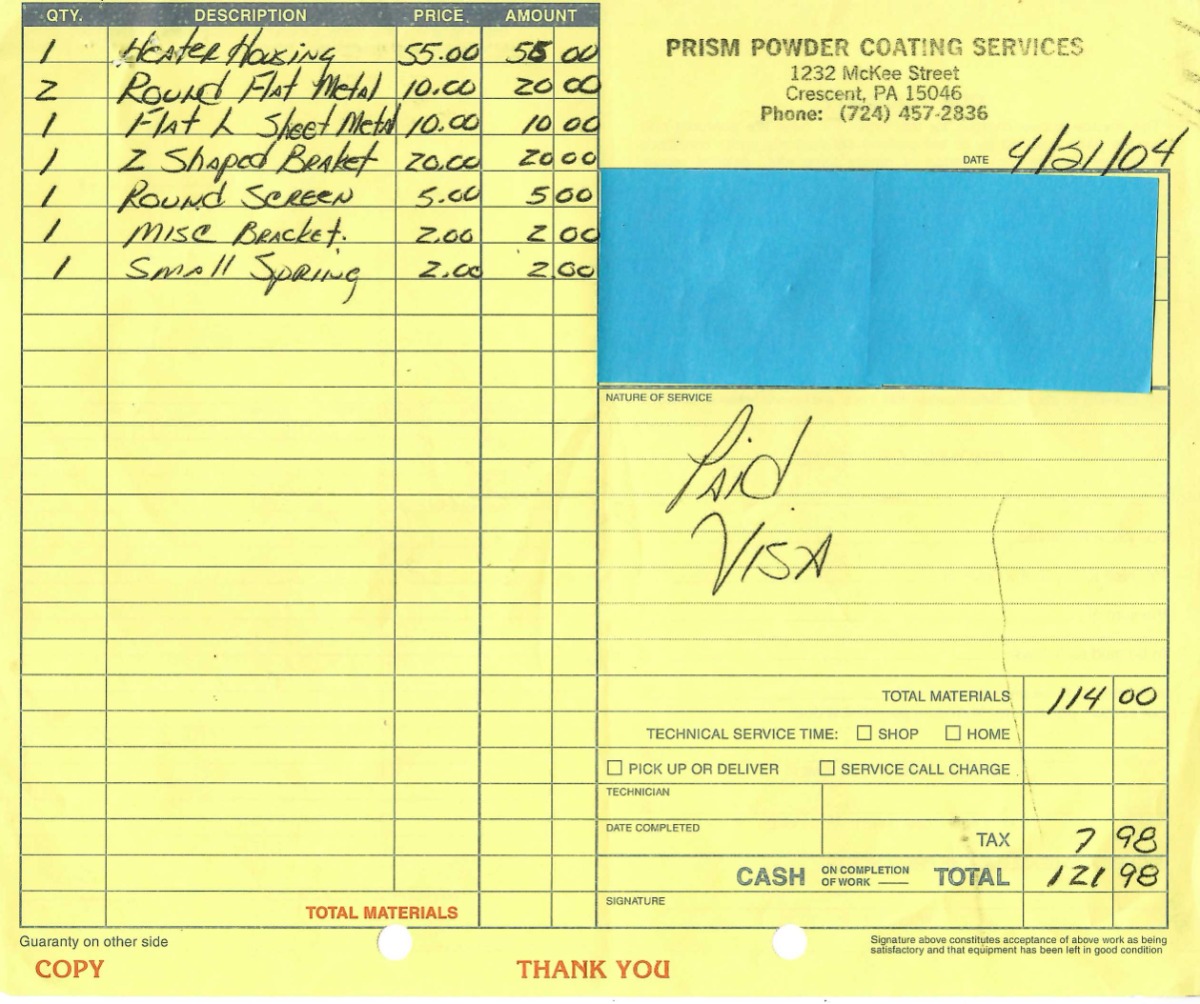 QTY. DESCRIPTION PRICE AMOUNT
1 Heater Housing 55.00 55 00
2 Round Flat Metal 10.00 20 00
1 Flat L Sheet Metal 10.00 10 00
1 Z Shaped Braket 20.00 20 00
1 Round Screen 5.00 5 00
1 Misc Bracket. 2.00 2 00
1 Small Spring 2.00 2.00
TOTAL MATERIALS
PRISM POWDER COATING SERVICES
1232 McKee Street
Crescent, PA 15046
Phone: (724) 457-2836
DATE 4/21/04
NATURE OF SERVICE
Paid
Visa
TOTAL MATERIALS 114 00
TECHNICAL SERVICE TIME: SHOP HOME
PICK UP OR DELIVER SERVICE CALL CHARGE
TECHNICIAN
DATE COMPLETED TAX 7 98
CASH ON COMPLETION OF WORK TOTAL 121 98
SIGNATURE
Guaranty on other side
Signature above constitutes acceptance of above work as being
satisfactory and that equipment has been left in good condition
COPY THANK YOU